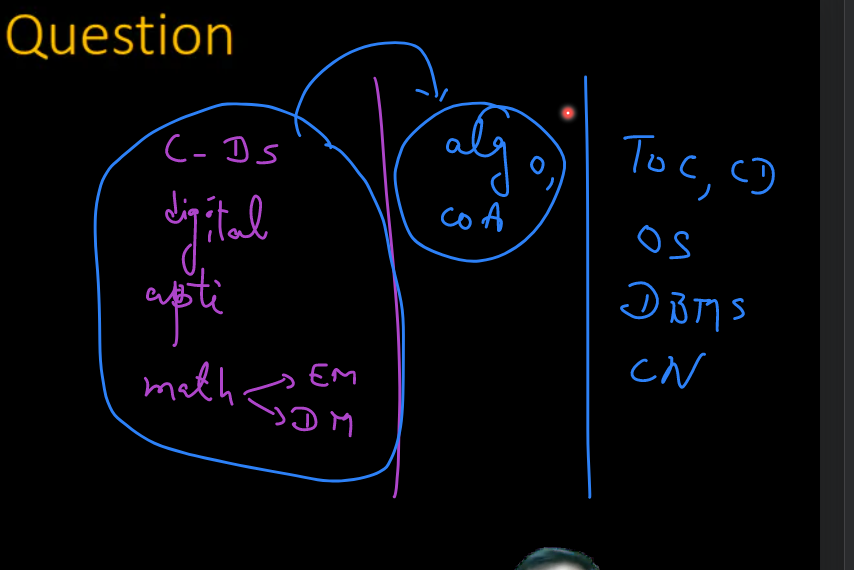 Question
C - DS
digital
apti
math → EM
→ DM
algo,
COA
TOC, CD
OS
DBMS
CN